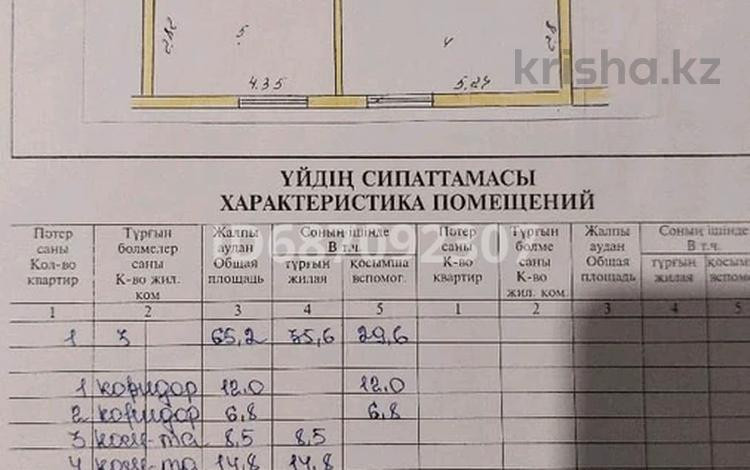 5
4
2.82
4.35
5.27
krisha.kz
ҮЙДІҢ СИПАТТАМАСЫ
ХАРАКТЕРИСТИКА ПОМЕЩЕНИЙ
Пәтер саны Кол-во квартир
Тұрғын бөлмелер саны К-во жил. ком
Жалпы аудан Общая площадь
Соның ішінде В т.ч.
тұрғын жилая
қосымша вспомог.
Пәтер саны К-во квартир
Тұрғын бөлме саны К-во жил. ком
Жалпы аудан Общая площадь
Соның ішінде В т.ч.
тұрғын жилая
қосымша вспомог
1 2 3 4 5 1 2 3 4 5
1 3 65,2 35,6 29,6
1 коридор 12.0 12.0
2 коридор 6,8 6,8
3 комн-та 8,5 8,5
4 комн-та 14,8 14,8